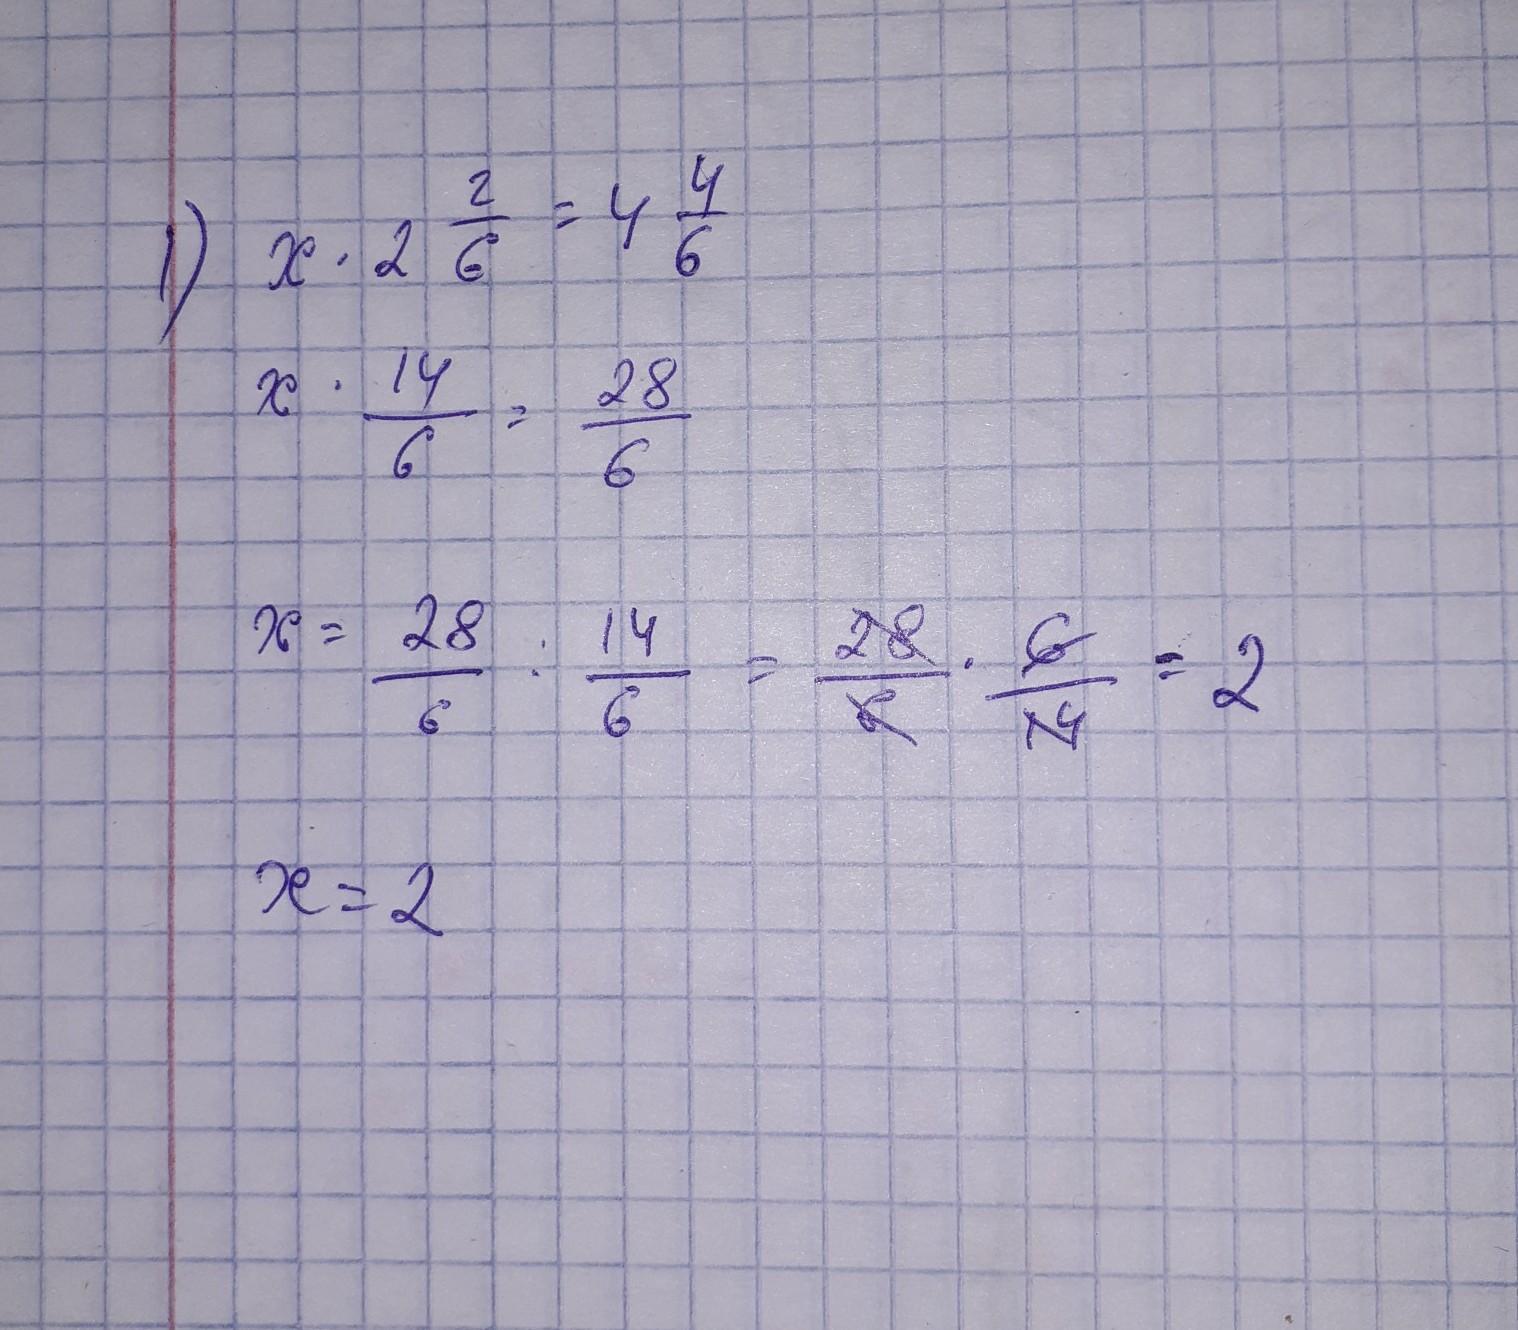 1) x · 2 2/6 = 4 4/6
x · 14/6 = 28/6
x = 28/6 : 14/6 = 28/6 · 6/14 = 2
x = 2